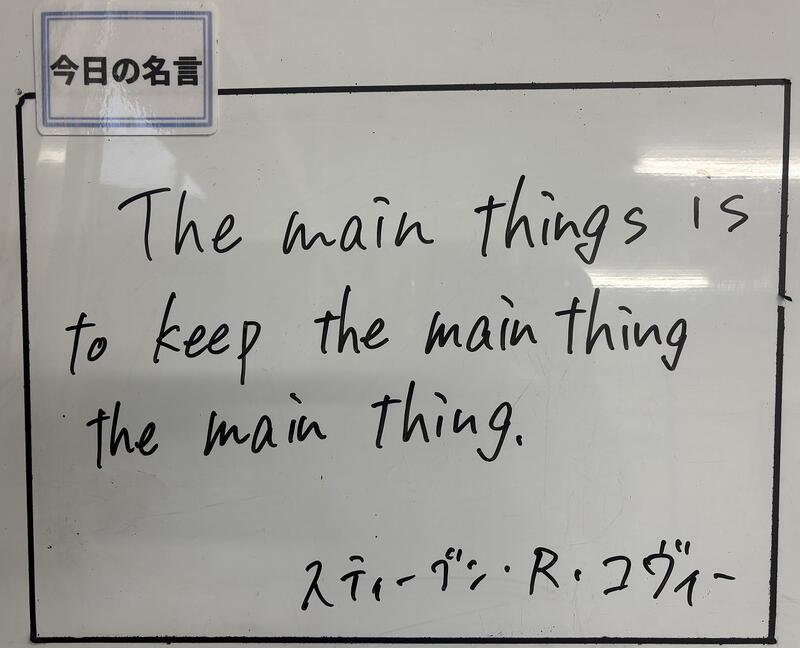 今日の名言
The main things is
to keep the main thing
the main thing.
スティーブン・R・コヴィー